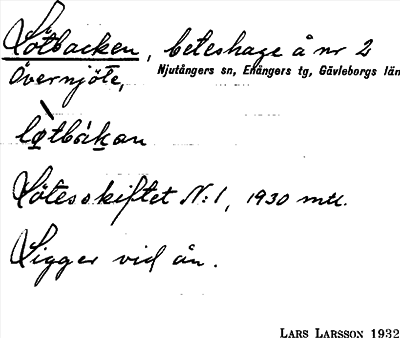 Lötbacken, beteshage å nr 2
Övernjöte, Njutångers sn, Enångers tg, Gävleborgs län
lø̀tbákan
Lötesskiftet N:1, 1930 mtl.
Ligger vid ån.
LARS LARSSON 1932